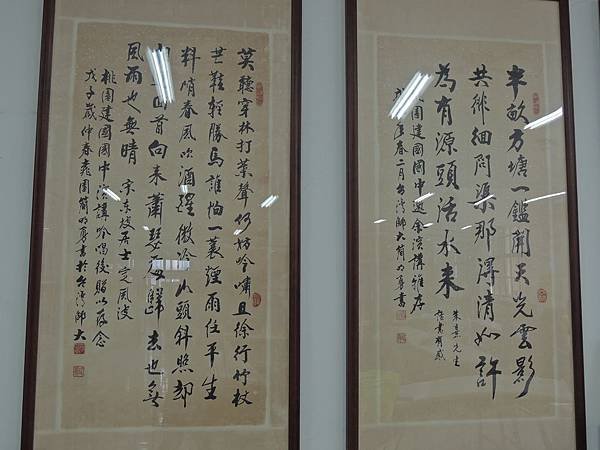 半畝方塘一鑑開天光雲影
共徘徊問渠那得清如許
為有源頭活水來
朱熹先生
觀書有感
園建國國中邀余演講雅
春二月台灣師大簡明勇書
莫聽穿林打葉聲何妨吟嘯且徐行竹杖
芒鞋輕勝馬誰怕一蓑煙雨任平生
料峭春風吹酒醒微冷山頭斜照卻
回首向來蕭瑟處歸去也無
風雨也無晴 宋東坡居士定風波
桃園建國國中演講吟唱後贈以存念
戊子歲仲春園簡明勇書於台灣師大